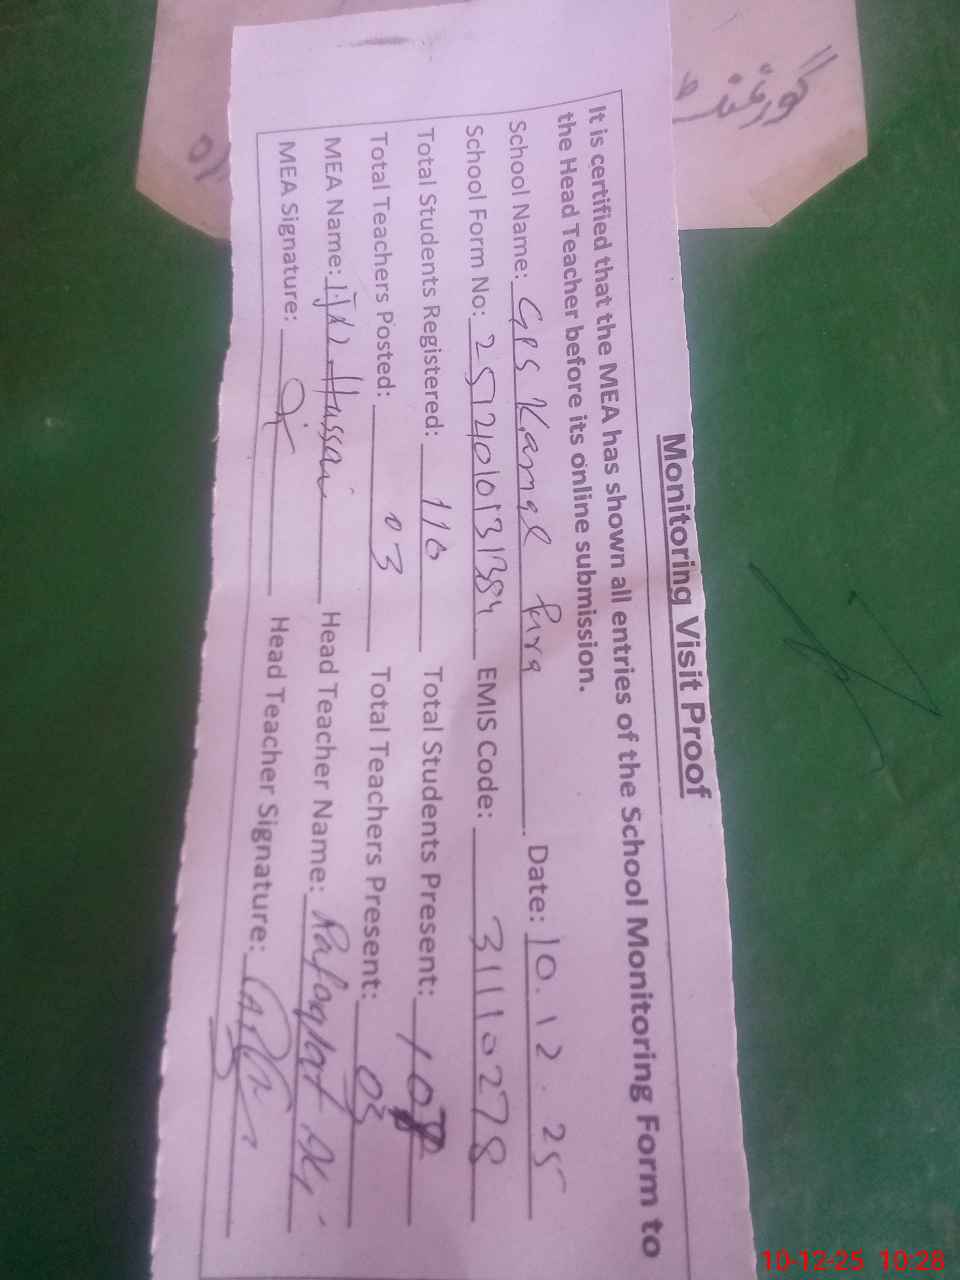 گورنمنٹ
Monitoring Visit Proof
It is certified that the MEA has shown all entries of the School Monitoring Form to
the Head Teacher before its online submission.
School Name: GPS Kamal Pura Date: 10.12.25
School Form No: EMIS Code: 31110278
Total Students Registered: 110 Total Students Present: 108
Total Teachers Posted: 03 Total Teachers Present: 03
MEA Name: Hussain Head Teacher Name: Rafaqat Ali
MEA Signature: Head Teacher Signature:
10-12-25 10:28